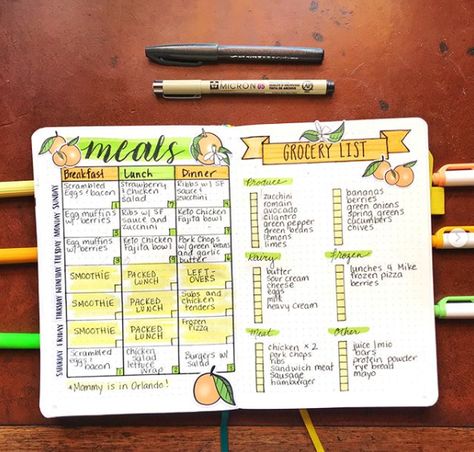 MICRON 05
meals
Breakfast Lunch Dinner
SUNDAY
Scrambled eggs & bacon
Strawberry & chicken salad
Ribs w/ SF sauce and zucchini
MONDAY
Egg muffins w/ berries
Ribs w/ SF sauce and zucchini
Keto Chicken Fajita bowl
TUESDAY
Egg muffins w/ berries
Keto Chicken Fajita bowl
Pork Chops w/ green beans and garlic butter
WEDNESDAY
SMOOTHIE
PACKED LUNCH
LEFT-OVERS
THURSDAY
SMOOTHIE
PACKED LUNCH
Subs and chicken tenders
FRIDAY
SMOOTHIE
PACKED LUNCH
Frozen Pizza
SATURDAY
Scrambled eggs & bacon
Chicken salad lettuce wrap
Burgers w/ salad
*Mommy is in Orlando!
GROCERY LIST
Produce
zucchini
romain
avocado
cilantro
green pepper
green beans
lemons
limes
bananas
berries
green onions
spring greens
cucumbers
chives
Dairy
butter
sour cream
cheese
eggs
milk
heavy cream
Frozen
lunches 4 Mike
frozen pizza
berries
Meat
chicken x 2
pork chops
ribs
sandwich meat
sausage
hamburger
Other
juice / mio
bars
protein powder
rye bread
mayo